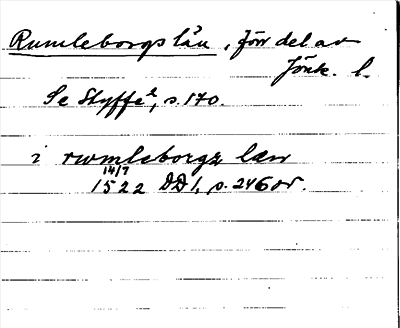 Rumleborgs län, förr del av
Jönk. l.
Se Styffe², s. 170.
i rwmleborgx læn
14/7
1522 DD 1, s. 246 or.